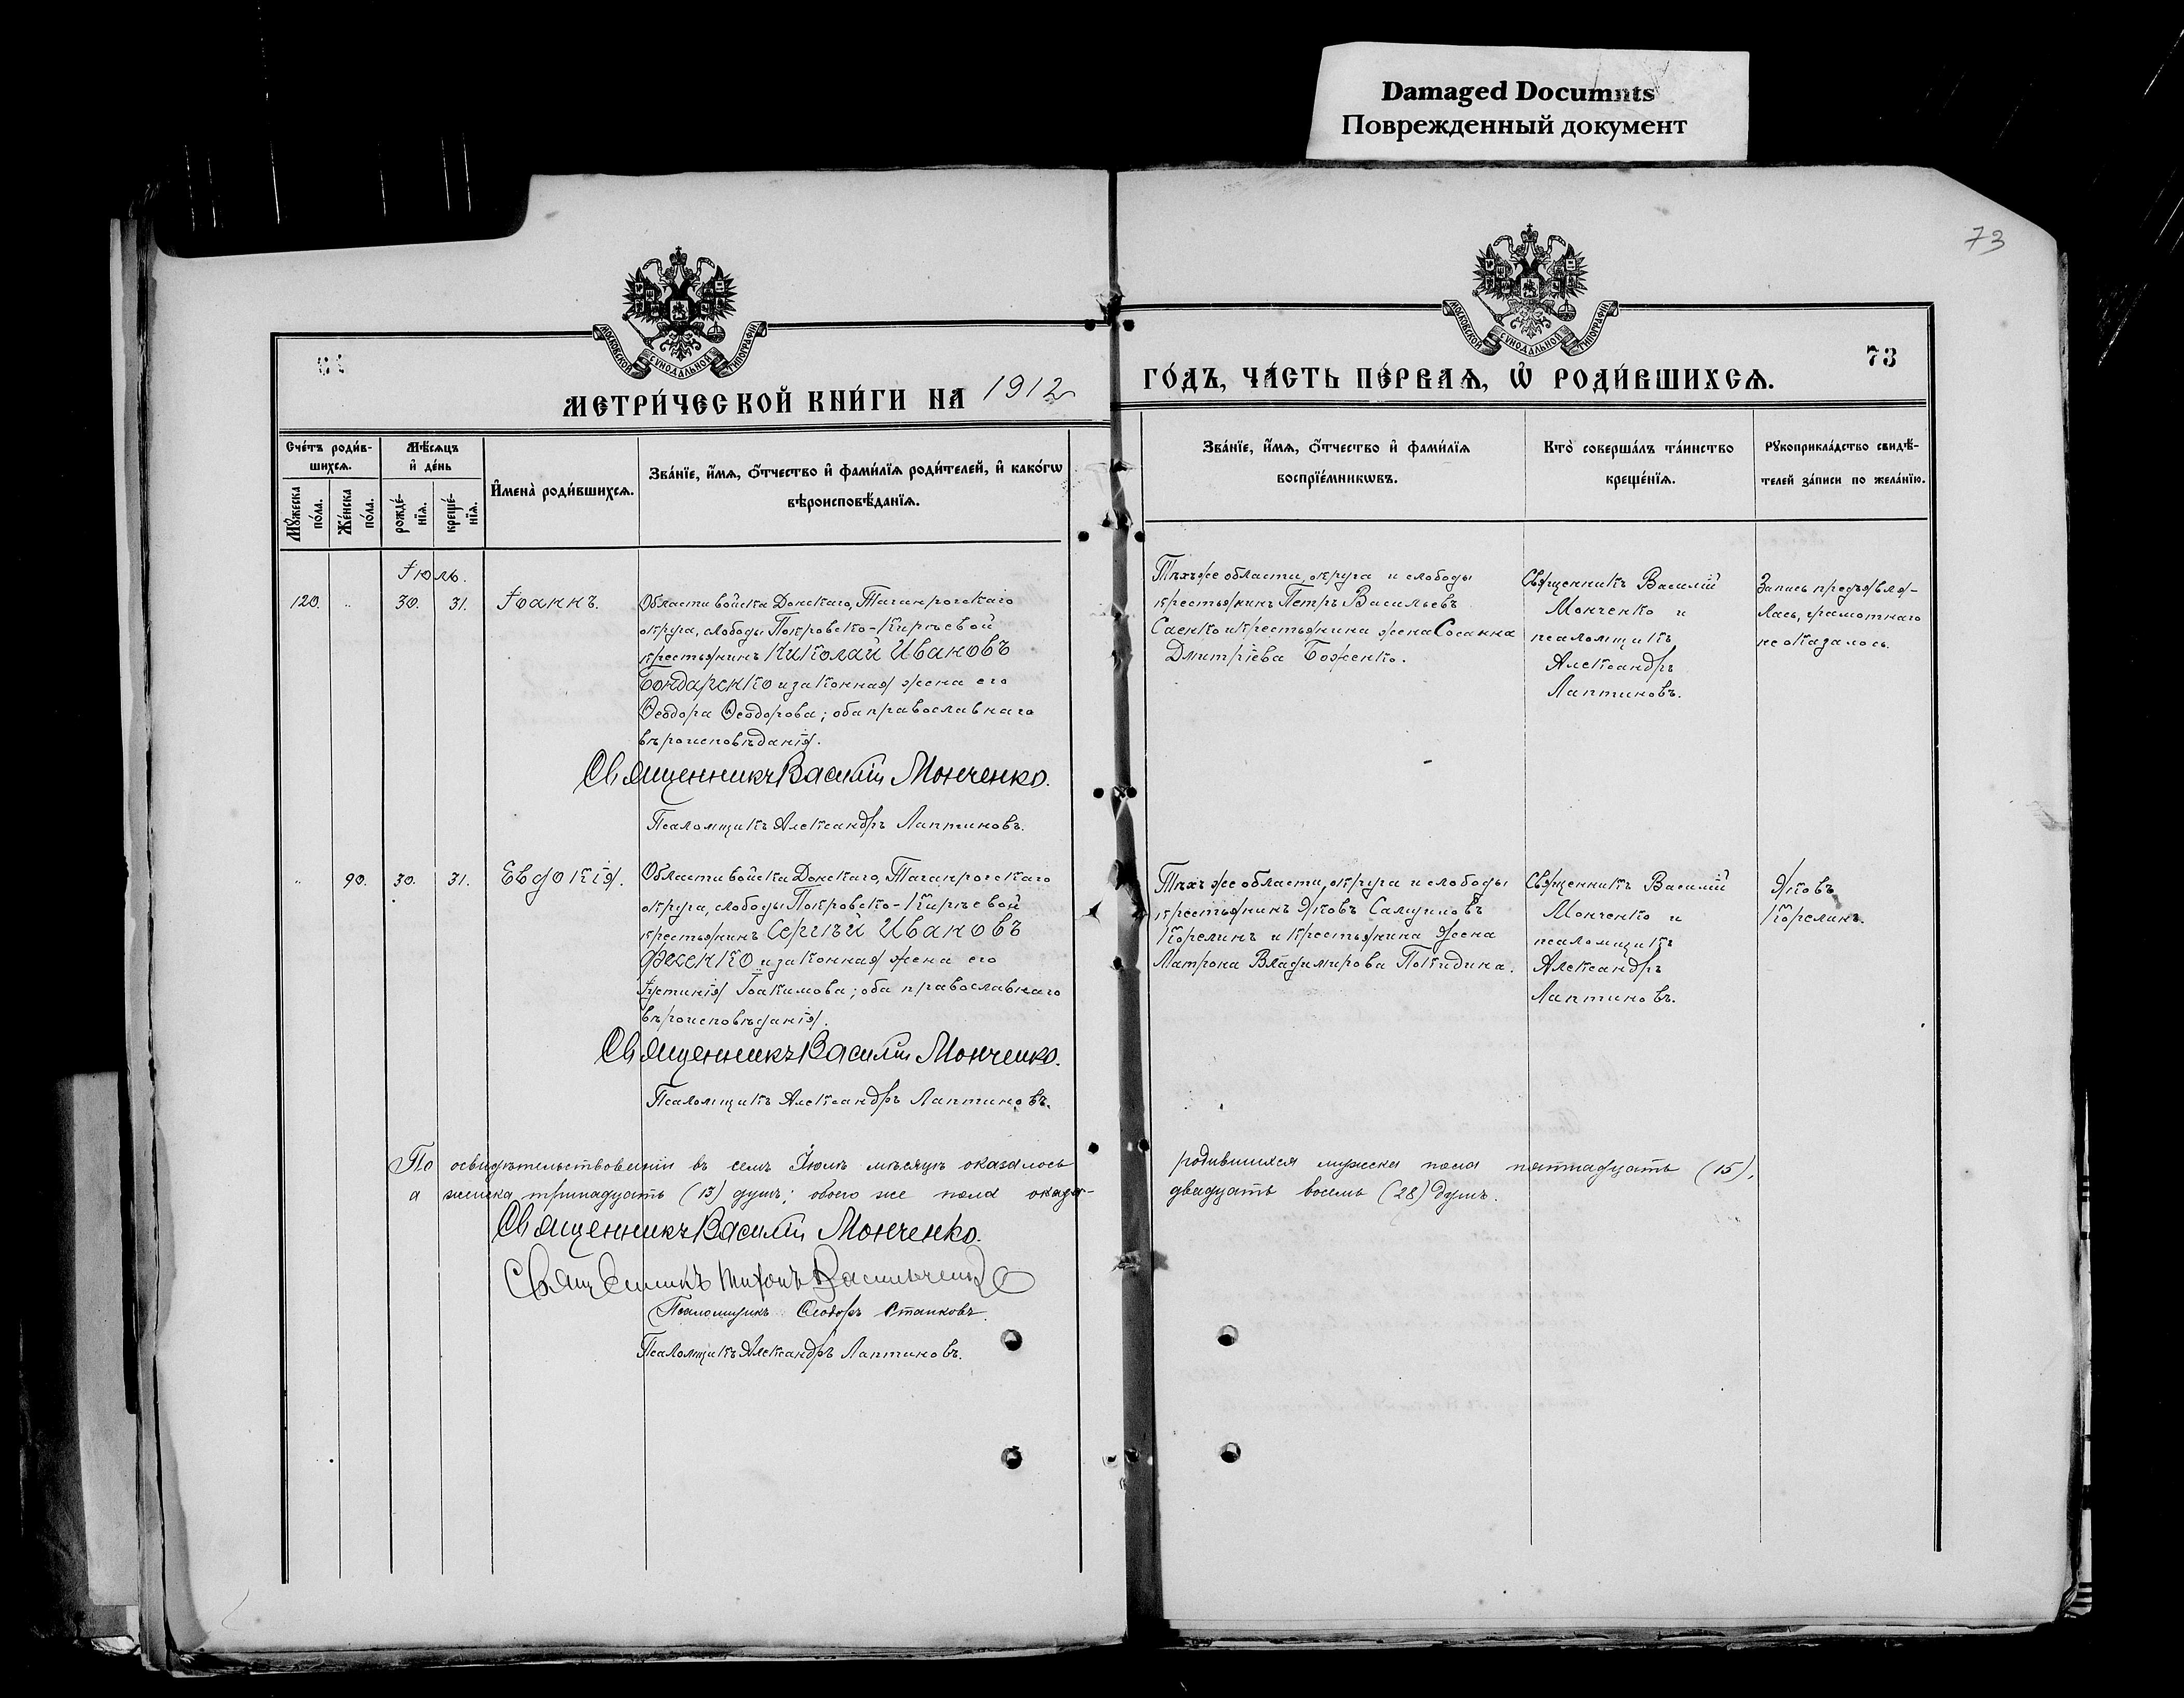 Damaged Documnts
Поврежденный документ
73
МОСКОВСКОЙ СѴНОДАЛЬНОЙ ТИПОГРАФІИ
МОСКОВСКОЙ СѴНОДАЛЬНОЙ ТИПОГРАФІИ
73
МЕТРИ́ЧЕСКОЙ КНИ́ГИ НА 1912
ГО́ДЪ, ЧА́СТЬ ПЕ́РВАѦ, Ѡ҆ РОДИ́ВШИХСѦ.
Сче́тъ роди́в-
шихсѧ.
Мꙋ́жеска по́ла.
Же́нска по́ла.
Мѣ́сѧцъ
и҆ де́нь
рожде́-
нїѧ.
креще́-
нїѧ.
И҆мена̀ роди́вшихсѧ.
Зва́нїе, и҆́мѧ, ѻ҆́тчество и҆ фами́лїѧ роди́телей, и҆ како́гѡ
вѣроисповѣ́данїѧ.
Зва́нїе, и҆́мѧ, ѻ҆́тчество и҆ фами́лїѧ
воспрїе́мникѡвъ.
Кто̀ соверша́лъ та́инство
креще́нїѧ.
Рꙋкоприкла́дство свидѣ́-
телей за́писи по жела́нїю.
Іюль.
120.
"
30.
31.
Іоаннъ.
Области войска Донскаго, Таганрогскаго
округа, слободы Покровско-Кирѣевой
крестьянинъ Николай Ивановъ
Бондаренко и законная жена его
Ѳеодора Ѳеодорова; оба православнаго
вѣроисповѣданія.
Священникъ Василій Монченко.
Псаломщикъ Александръ Лаптиновъ.
Тѣхъ же области, округа и слободы
крестьянинъ Петръ Васильевъ
Саенко и крестьянина жена Сосанна
Дмитріева Боженко.
Священникъ Василій
Монченко и
псаломщикъ
Александръ
Лаптиновъ.
Запись предъявля-
лась, грамотнаго
не оказалось.
"
90.
30.
31.
Евдокія.
Области войска Донскаго, Таганрогскаго
округа, слободы Покровско-Кирѣевой
крестьянинъ Сергѣй Ивановъ
Фесенко и законная жена его
Іустинія Іоакимова; оба православнаго
вѣроисповѣданія.
Священникъ Василій Монченко.
Псаломщикъ Александръ Лаптиновъ.
Тѣхъ же области, округа и слободы
крестьянинъ Яковъ
Корелинъ и крестьянина жена
Матрона Владимирова Покидина.
Священникъ Василій
Монченко и
псаломщикъ
Александръ
Лаптиновъ.
Яковъ
Корелинъ.
По освидѣтельствованіи въ семъ Іюлѣ мѣсяцѣ оказалось родившихся мужеска пола пятнадцать (15),
а женска тринадцать (13) душъ; обоего же пола оказа- двадцать восемь (28) душъ.
Священникъ Василій Монченко.
Священникъ Тихонъ Васильченко
Псаломщикъ Ѳеодоръ Станковъ.
Псаломщикъ Александръ Лаптиновъ.